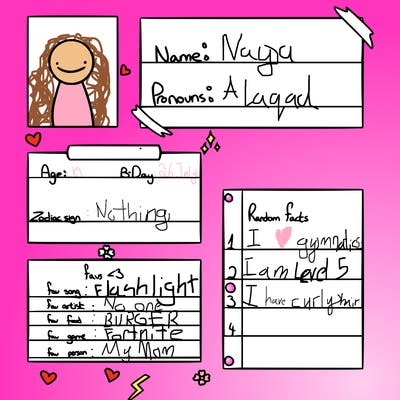 Name: Naya
Pronouns: A Laqad
Age:
B-Day: 26 July
Zodiac sign: Nothing
favs <3
fav song: Flashlight
fav artist: No one
fav food: BURGER
fav game: Fortnite
fav person: My Mom
Random facts
1 I gymnatics
2 I am Level 5
3 I have curly hair
4